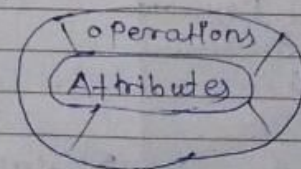 operations
Attributes